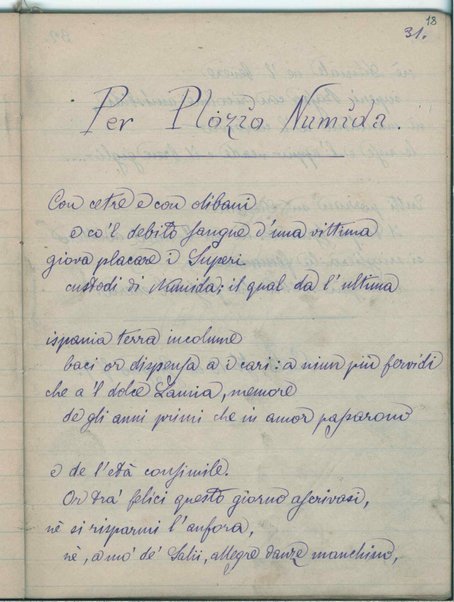 18
31.
Per Plózio Numida.
Con cetre e con olibani
e co 'l debito sangue d'una vittima
giova placare i Superi
custodi di Numida; il qual da l'ultima
ispania terra incolume
baci or dispensa a i cari: a niun più fervidi
che a 'l dolce Lamia, memore
de gli anni primi che in amor passarono
e de l'età consimile.
Or tra' felici questo giorno ascrivasi,
nè si risparmi l'anfora,
nè, a mo' de' Salii, allegre danze manchino,